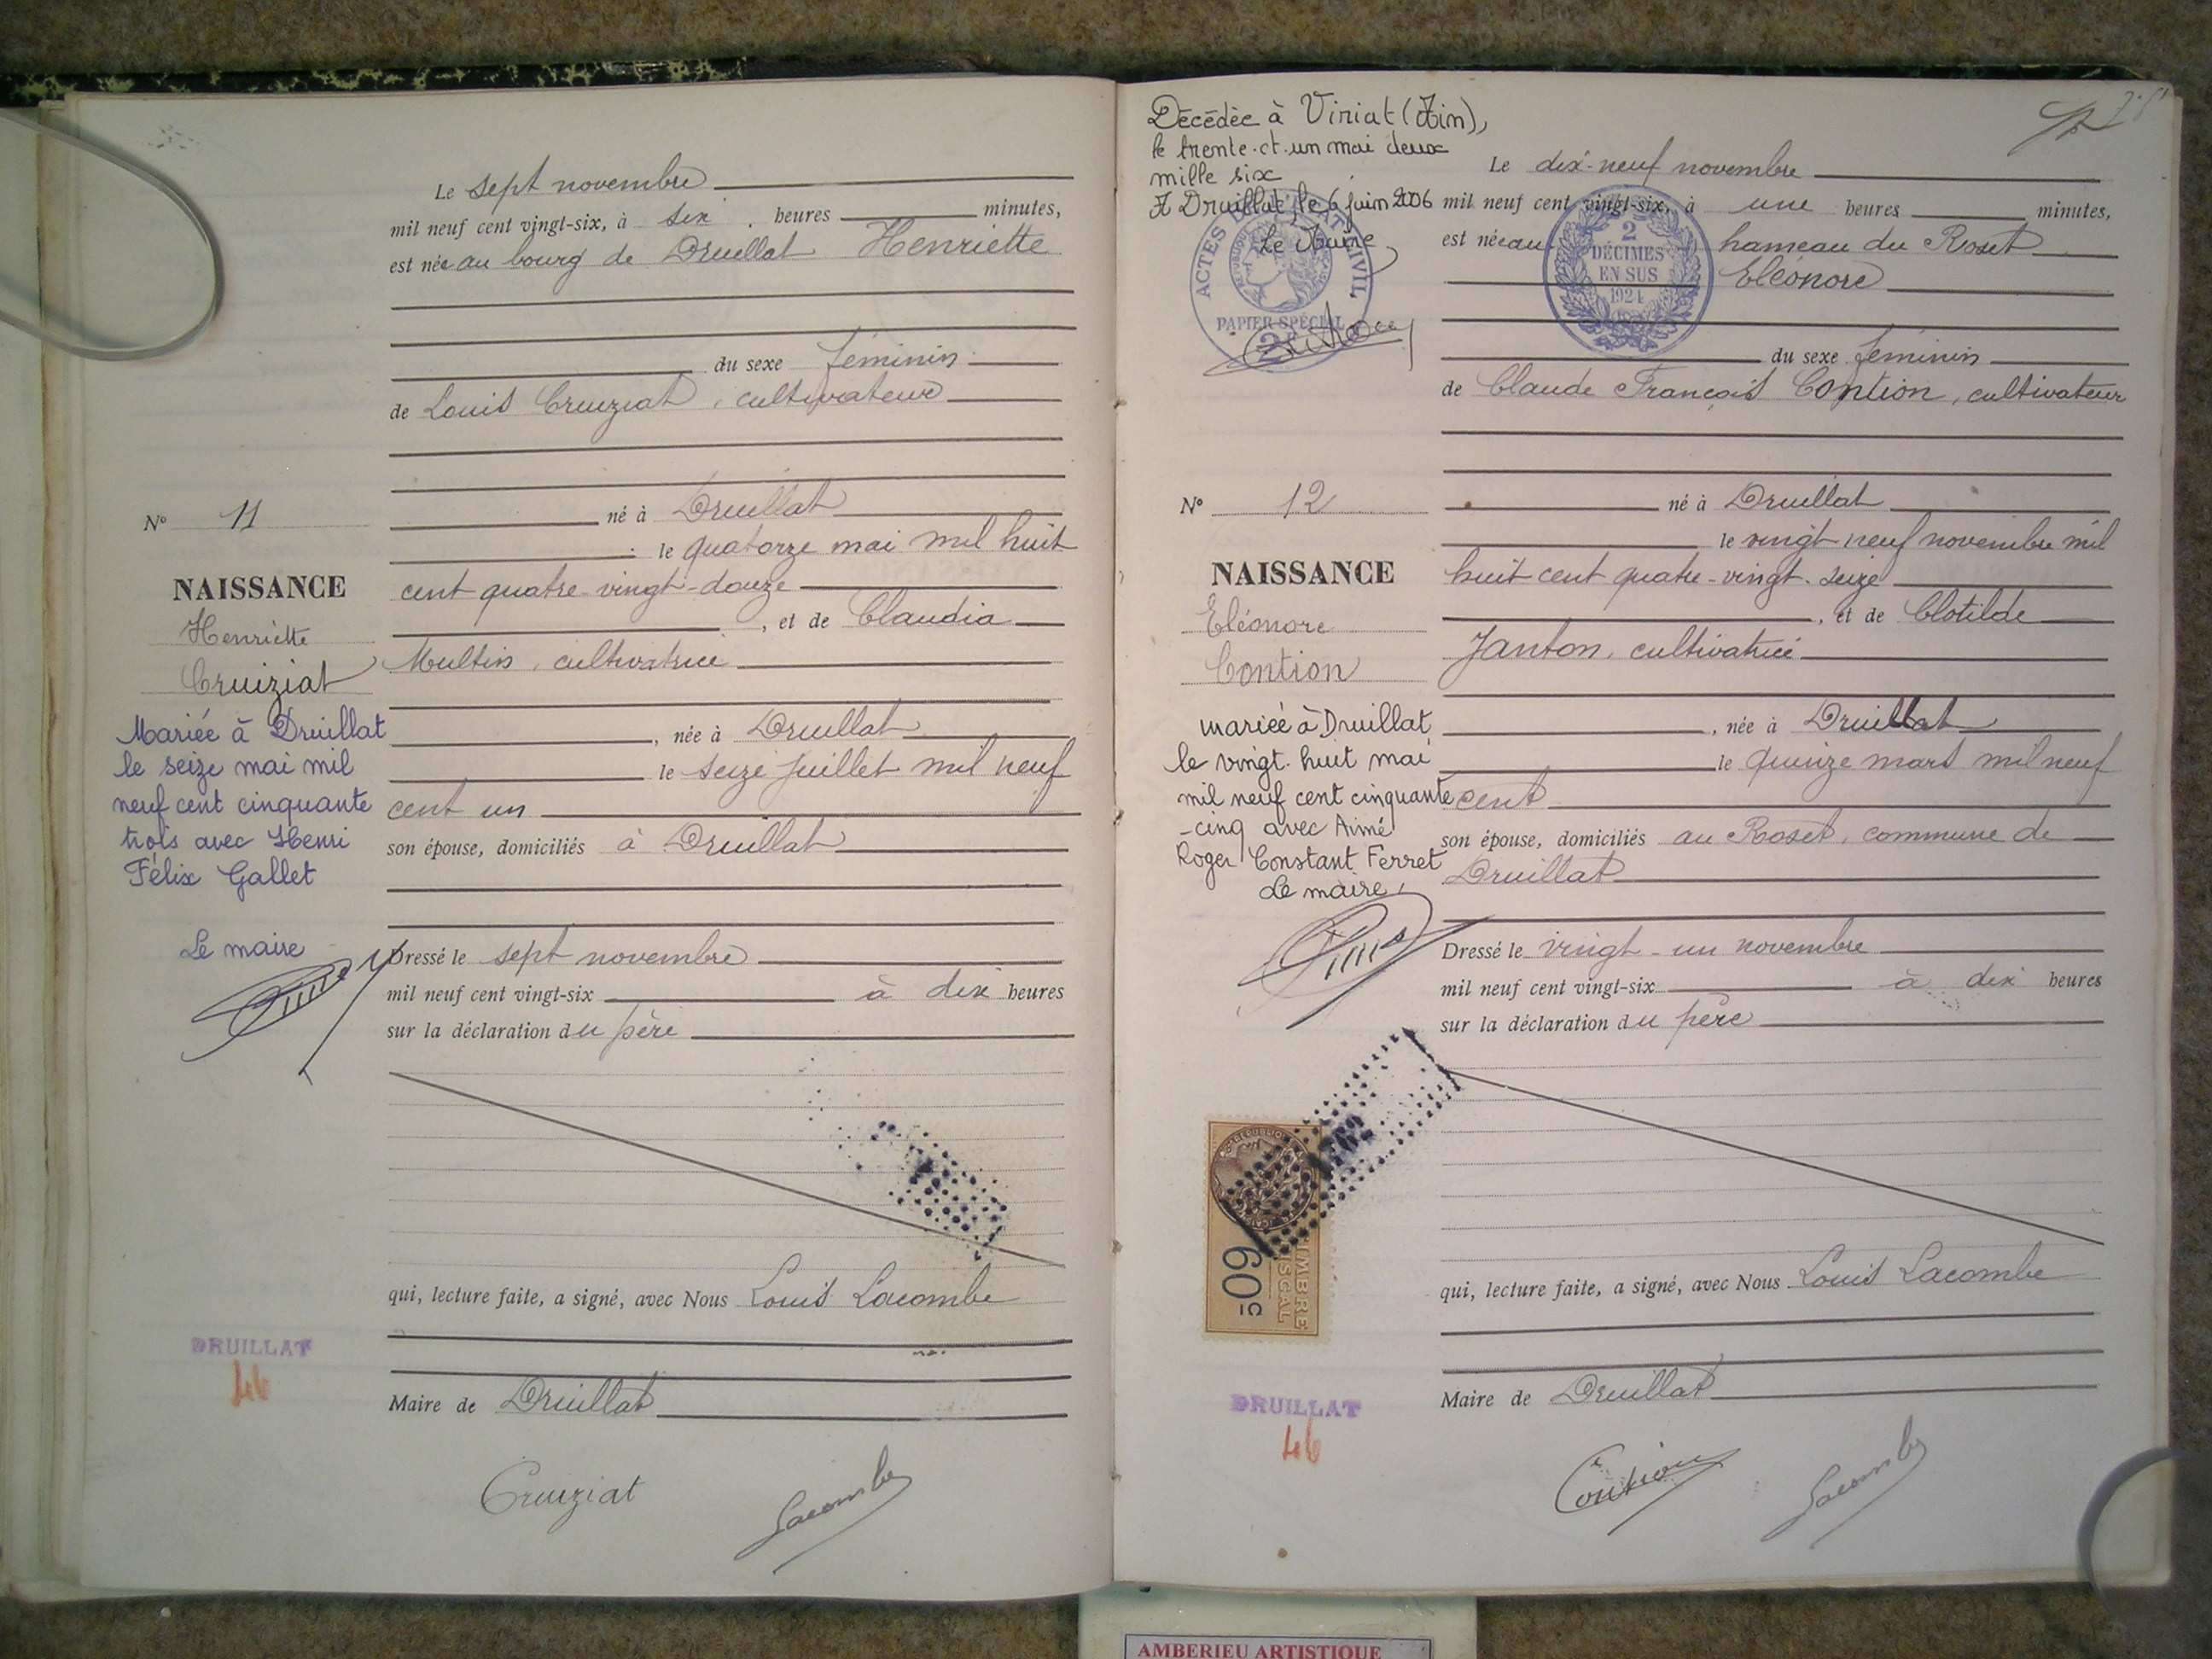 Le sept novembre
mil neuf cent vingt-six, à six heures minutes,
est née au bourg de Druillat Henriette
du sexe féminin
de Louis Cruiziat, cultivateur
né à Druillat
le quatorze mai mil huit
cent quatre-vingt-douze
, et de Claudia
cultivatrice
, née à Druillat
le seize juillet mil neuf
cent un
son épouse, domiciliés à Druillat
Dressé le sept novembre
mil neuf cent vingt-six à dix heures
sur la déclaration du père
qui, lecture faite, a signé, avec Nous Louis Lacombe
Maire de Druillat
Cruiziat Lacombe
N° 11
NAISSANCE
Henriette
Cruiziat
Mariée à Druillat
le seize mai mil
neuf cent cinquante
trois avec Henri
Félix Gallet
Le maire
DRUILLAT
46
Décédée à Viriat (Ain),
le trente-et-un mai deux
mille six
A Druillat, le 6 juin 2006
Le Maire
PAPIER SPÉCIAL
2
DÉCIMES
EN SUS
1924
N° 12
NAISSANCE
Eléonore
Contion
mariée à Druillat
le vingt-huit mai
mil neuf cent cinquante
-cinq avec Aimé
Roger Constant Ferret
Le maire,
Le dix-neuf novembre
mil neuf cent vingt-six, à une heures minutes,
est née au hameau du Roset
Eléonore
du sexe féminin
de Claude François Contion, cultivateur
né à Druillat
le vingt neuf novembre mil
huit cent quatre-vingt-seize
, et de Clotilde
Janton, cultivatrice
, née à Druillat
le quinze mars mil neuf
cent
son épouse, domiciliés au Roset, commune de
Druillat
Dressé le vingt-un novembre
mil neuf cent vingt-six à dix heures
sur la déclaration du père
qui, lecture faite, a signé, avec Nous Louis Lacombe
Maire de Druillat
Contion Lacombe
60
DRUILLAT
46
AMBERIEU ARTISTIQUE